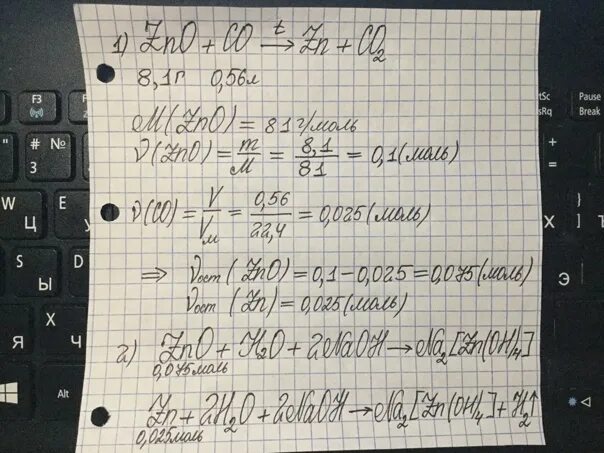 1) ZnO + CO →t Zn + CO₂
8,1г 0,56л
M(ZnO) = 81г/моль
ν(ZnO) = m/M = 8,1/81 = 0,1(моль)
ν(CO) = V/Vм = 0,56/22,4 = 0,025(моль)
⇒ νост(ZnO) = 0,1 – 0,025 = 0,075(моль)
νост(Zn) = 0,025(моль)
2) ZnO + H₂O + 2NaOH → Na₂[Zn(OH)₄]
0,075моль
Zn + 2H₂O + 2NaOH → Na₂[Zn(OH)₄] + H₂↑
0,025моль
F3
#
3
№
W
Ц
E
У
S
Ы
D
В
X
Ч
Я
Alt
F4
tSc
sRq
Pause
Break
+
=
}
]
Х
Ъ
Э